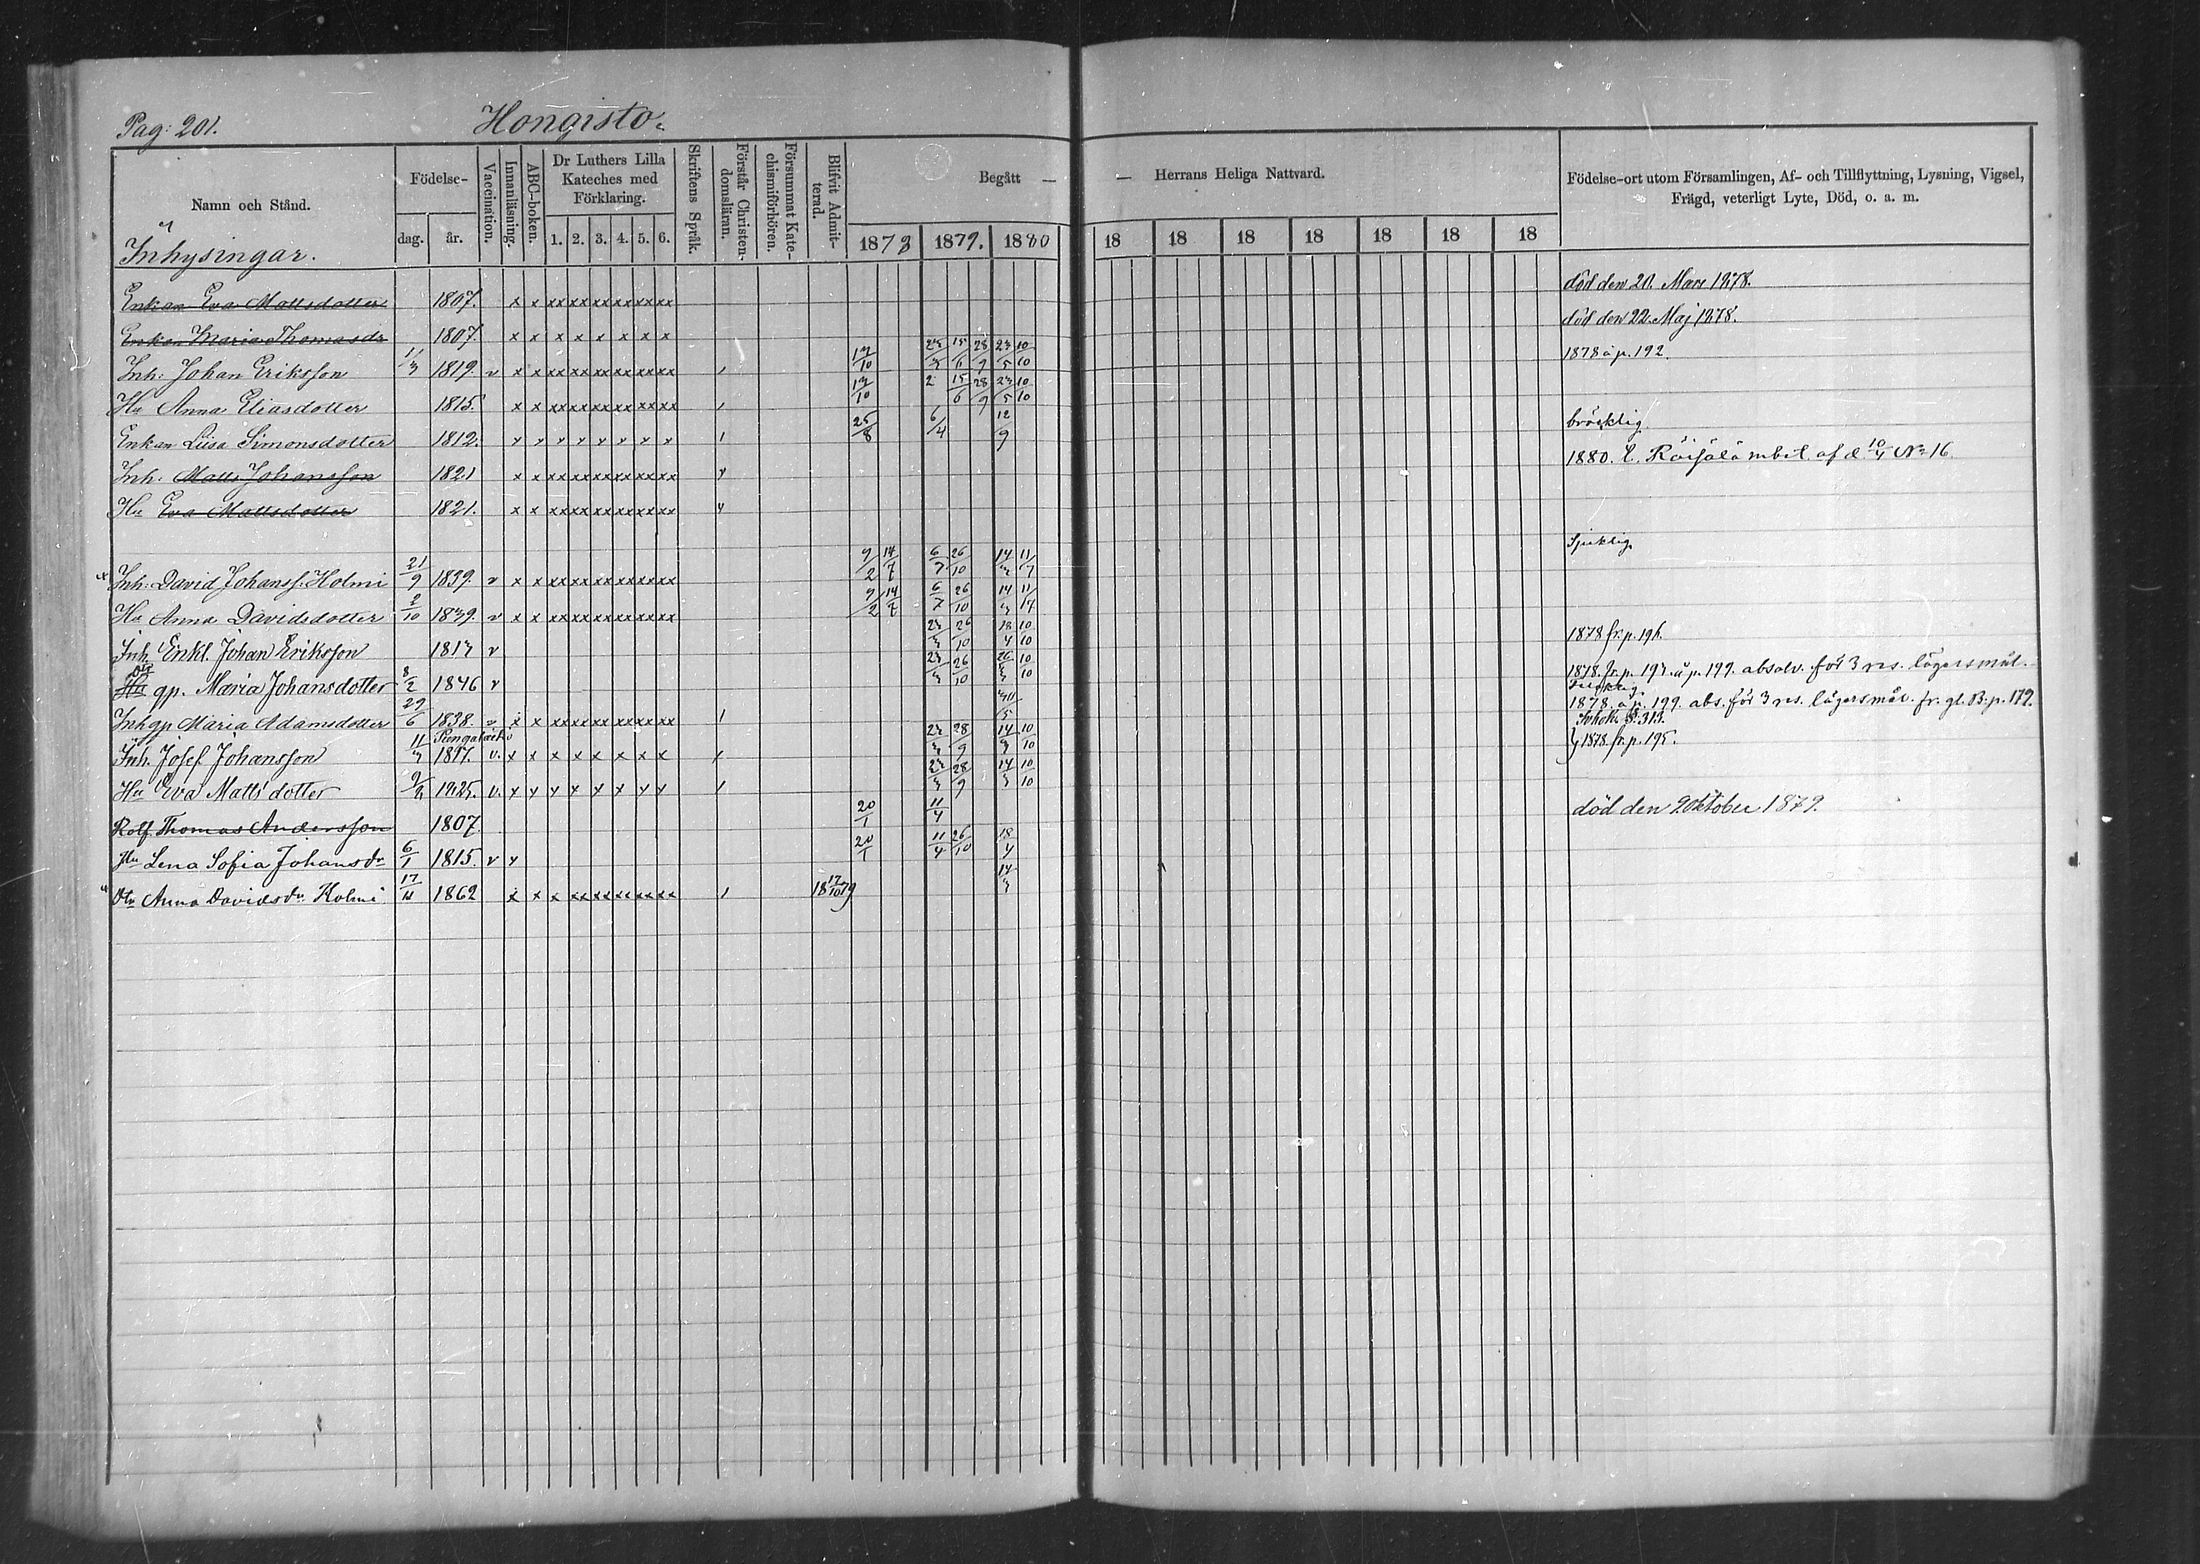 Pag: 201.
Hongisto.
Namn och Stånd.
Födelse-
dag. år.
Vaccination.
Innanläsning.
ABC-boken.
Dr Luthers Lilla
Kateches med
Förklaring.
1. 2. 3. 4. 5. 6.
Skriftens Språk.
Förstår Christen-
domsläran.
Försummat Kate-
chismiförhören.
Blifvit Admit-
terad.
Begått —
— Herrans Heliga Nattvard.
1878 1879. 1880
18 18 18 18 18 18 18
Födelse-ort utom Församlingen, Af- och Tillflyttning, Lysning, Vigsel,
Frägd, veterligt Lyte, Död, o. a. m.
Inhysingar.
Enkan Eva Mattsdotter 1807. x x xx xx xx xx xx xx död den 20. Mars 1878.
Enkan Maria Thomasdr 1807. x x x x x x x x död den 22. Maj 1878.
Inh: Johan Eriksson 1819. v x x xx xx xx xx xx xx 1878 å p. 192.
Hu Anna Eliasdotter 1815. x x xx xx xx xx xx xx
Enkan Liisa Simonsdotter 1812. 25/8 6/4 12/9 bråcklig
Inh. Matts Johansson 1821 x x xx xx xx xx xx xx 1880. t. Räisälä m bet. af d 10/4 No 16
Hu Eva Mattsdotter 1821. x x xx xx xx xx xx xx
Inh: David Johanss. Holmi 21/9 1839. v x x xx xx xx xx xx xx 9/2 14/7 6/7 26/10 14/3 11/7 Sjuklig
Hu Anna Davidsdotter 2/10 1839. v x x xx xx xx xx xx xx 9/2 14/7 6/7 26/10
Inh. Enkl. Johan Eriksson 1813 v 23/3 26/10 18/4 10/10 1878 fr. p. 196.
gp. Maria Johansdotter 8/2 1846 v 23/3 26/10 26/3 10/10 1878. fr. p. 197. å p. 199. absolv. för 3 res. lägersmål.
Inh gp Maria Adamsdotter 29/6 1838. v x x xx xx xx xx xx xx 1878. å p. 199. abs. för 3 res. lägersmål. fr. gl. B. p. 179.
Inh. Josef Johansson 11/3 1817. v. x x x x x x x x 23/3 28/9 14/3 10/10 1878 fr. p. 195.
Hu Eva Mattsdotter 1825. v. 23/3 28/9 14/3 10/10
Rolf Thomas Andersson 1807. 20/1 11/4 död den 9 Oktober 1879.
Hu Lena Sofia Johansdr 6/1 1815. v 20/1 11/4 26/10 18/4
Dtr Anna Davidsdr Holmi 17/11 1862 x x x xx xx xx xx xx 18 17/10 79 14/3